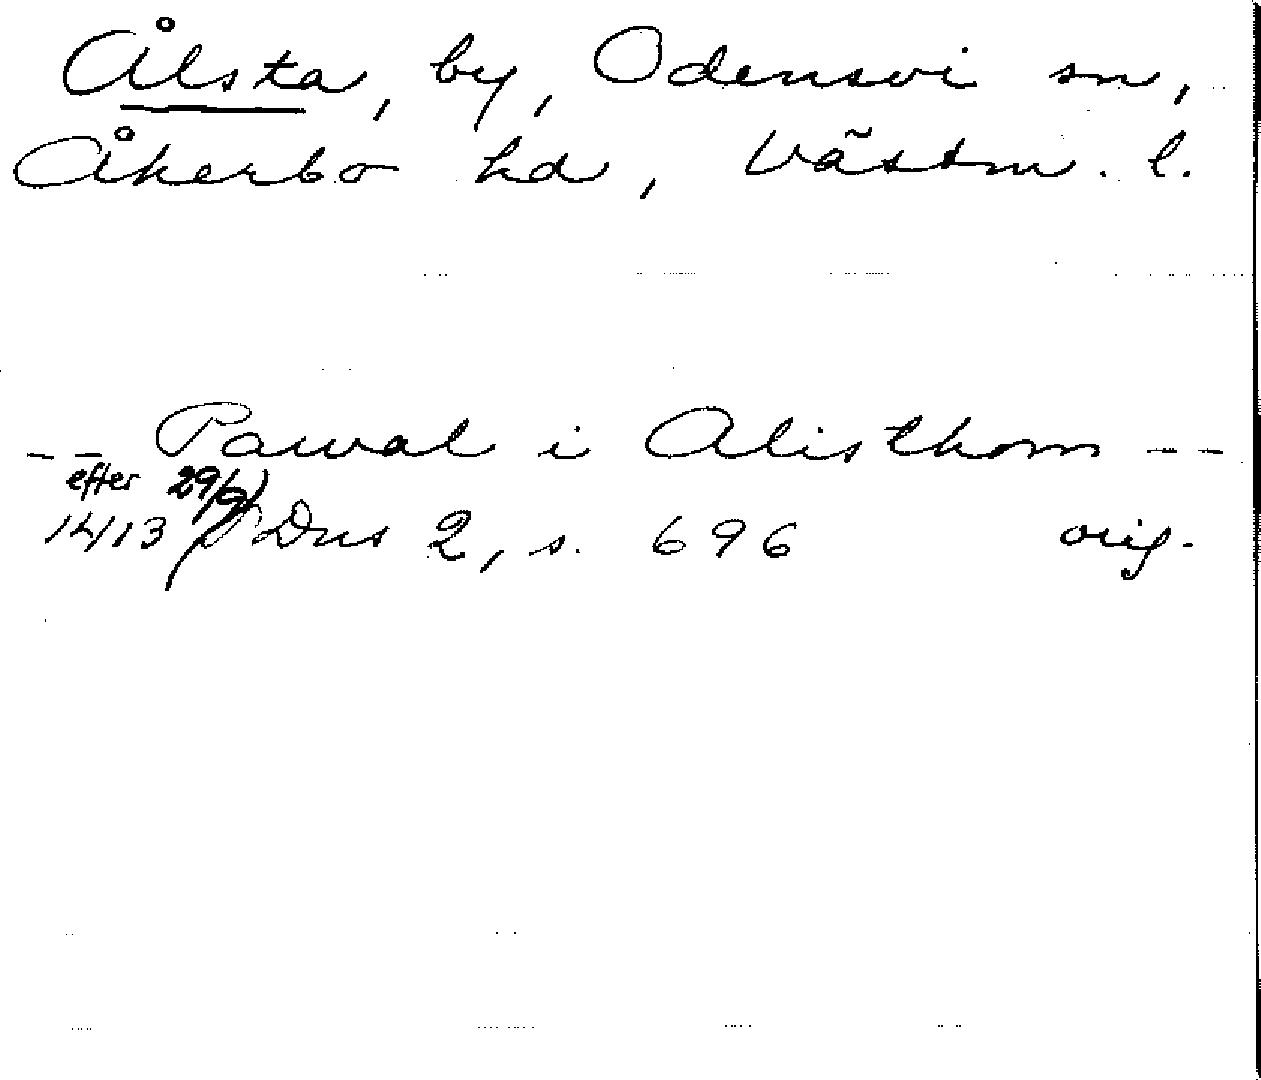 Ålsta, by, Odensvi sn,
Åkerbo hd, Västm. l.
-- Pawal i Alisthom --
efter 29/9
1413 Dns 2, s. 696 orig.